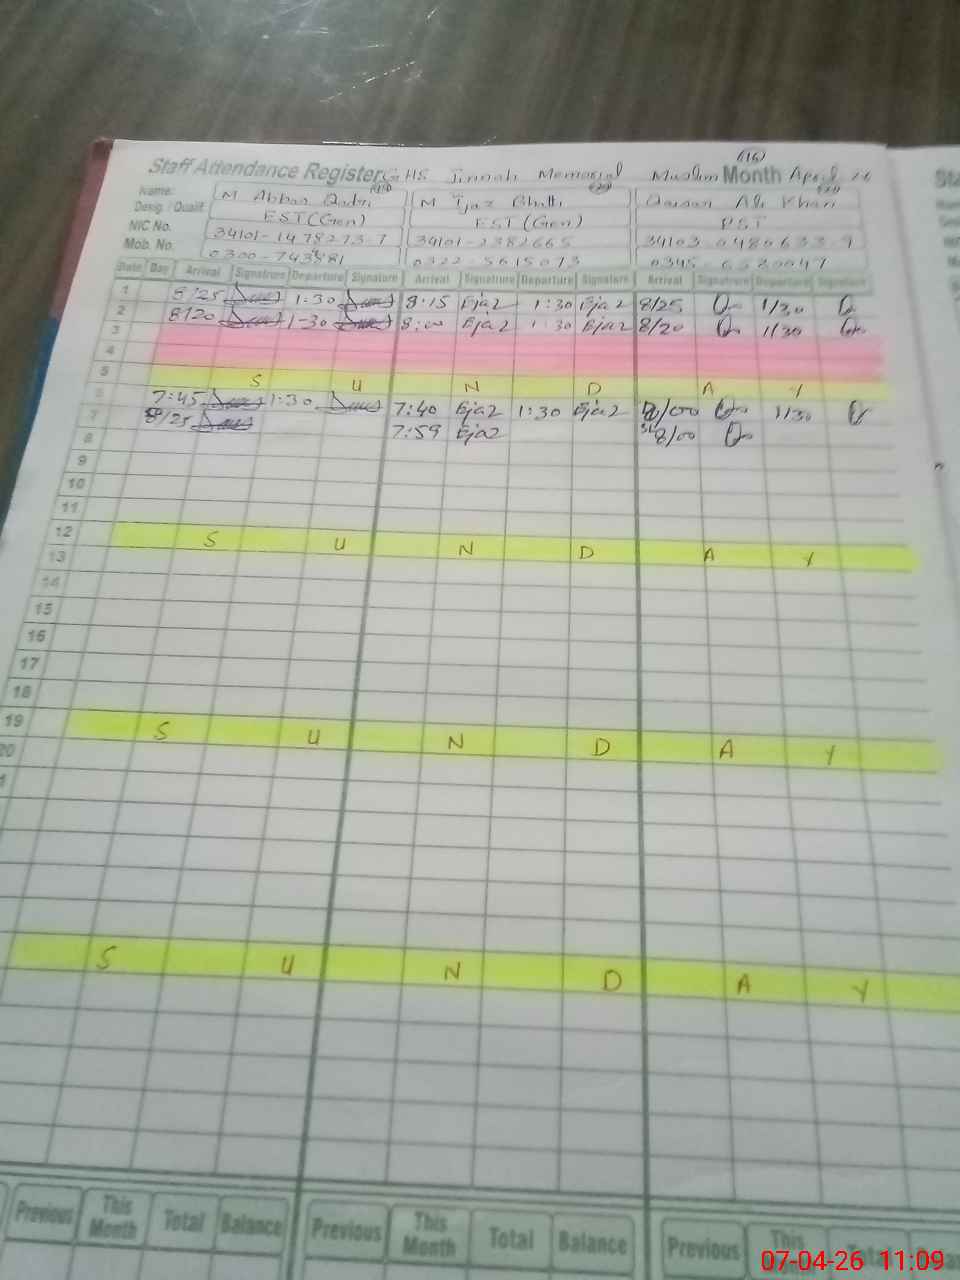 Staff Attendance Register GHS Jinnah Memorial Muslim Month April 26
(16)
Name: M Abbas M Ijaz Bhatti Ali Khan
Desig. / Qualif. EST (Gen) EST (Gen) PST
NIC No. 34101-1478273-7 34101-2382665 34103-0480633-9
Mob. No. 0300- 0322-5615073 0345-
Date Day Arrival Signature Departure Signature Arrival Signature Departure Signature Arrival Signature Departure Signature
1 8/25 1:30 8:15 Ejaz 1:30 Ejaz 8/25 1/30
2 8/20 1-30 8:00 Ejaz 1:30 Ejaz 8/20 1/30
3
4
5 S U N D A Y
6 7:45 1:30 7:40 Ejaz 1:30 Ejaz 8/00 1/30
7 8/25 7:59 Ejaz 8/00
8
9
10
11
12 S U N D A Y
13
14
15
16
17
18
19 S U N D A Y
20
S U N D A Y
Previous This Month Total Balance Previous This Month Total Balance Previous This Total
07-04-26 11:09